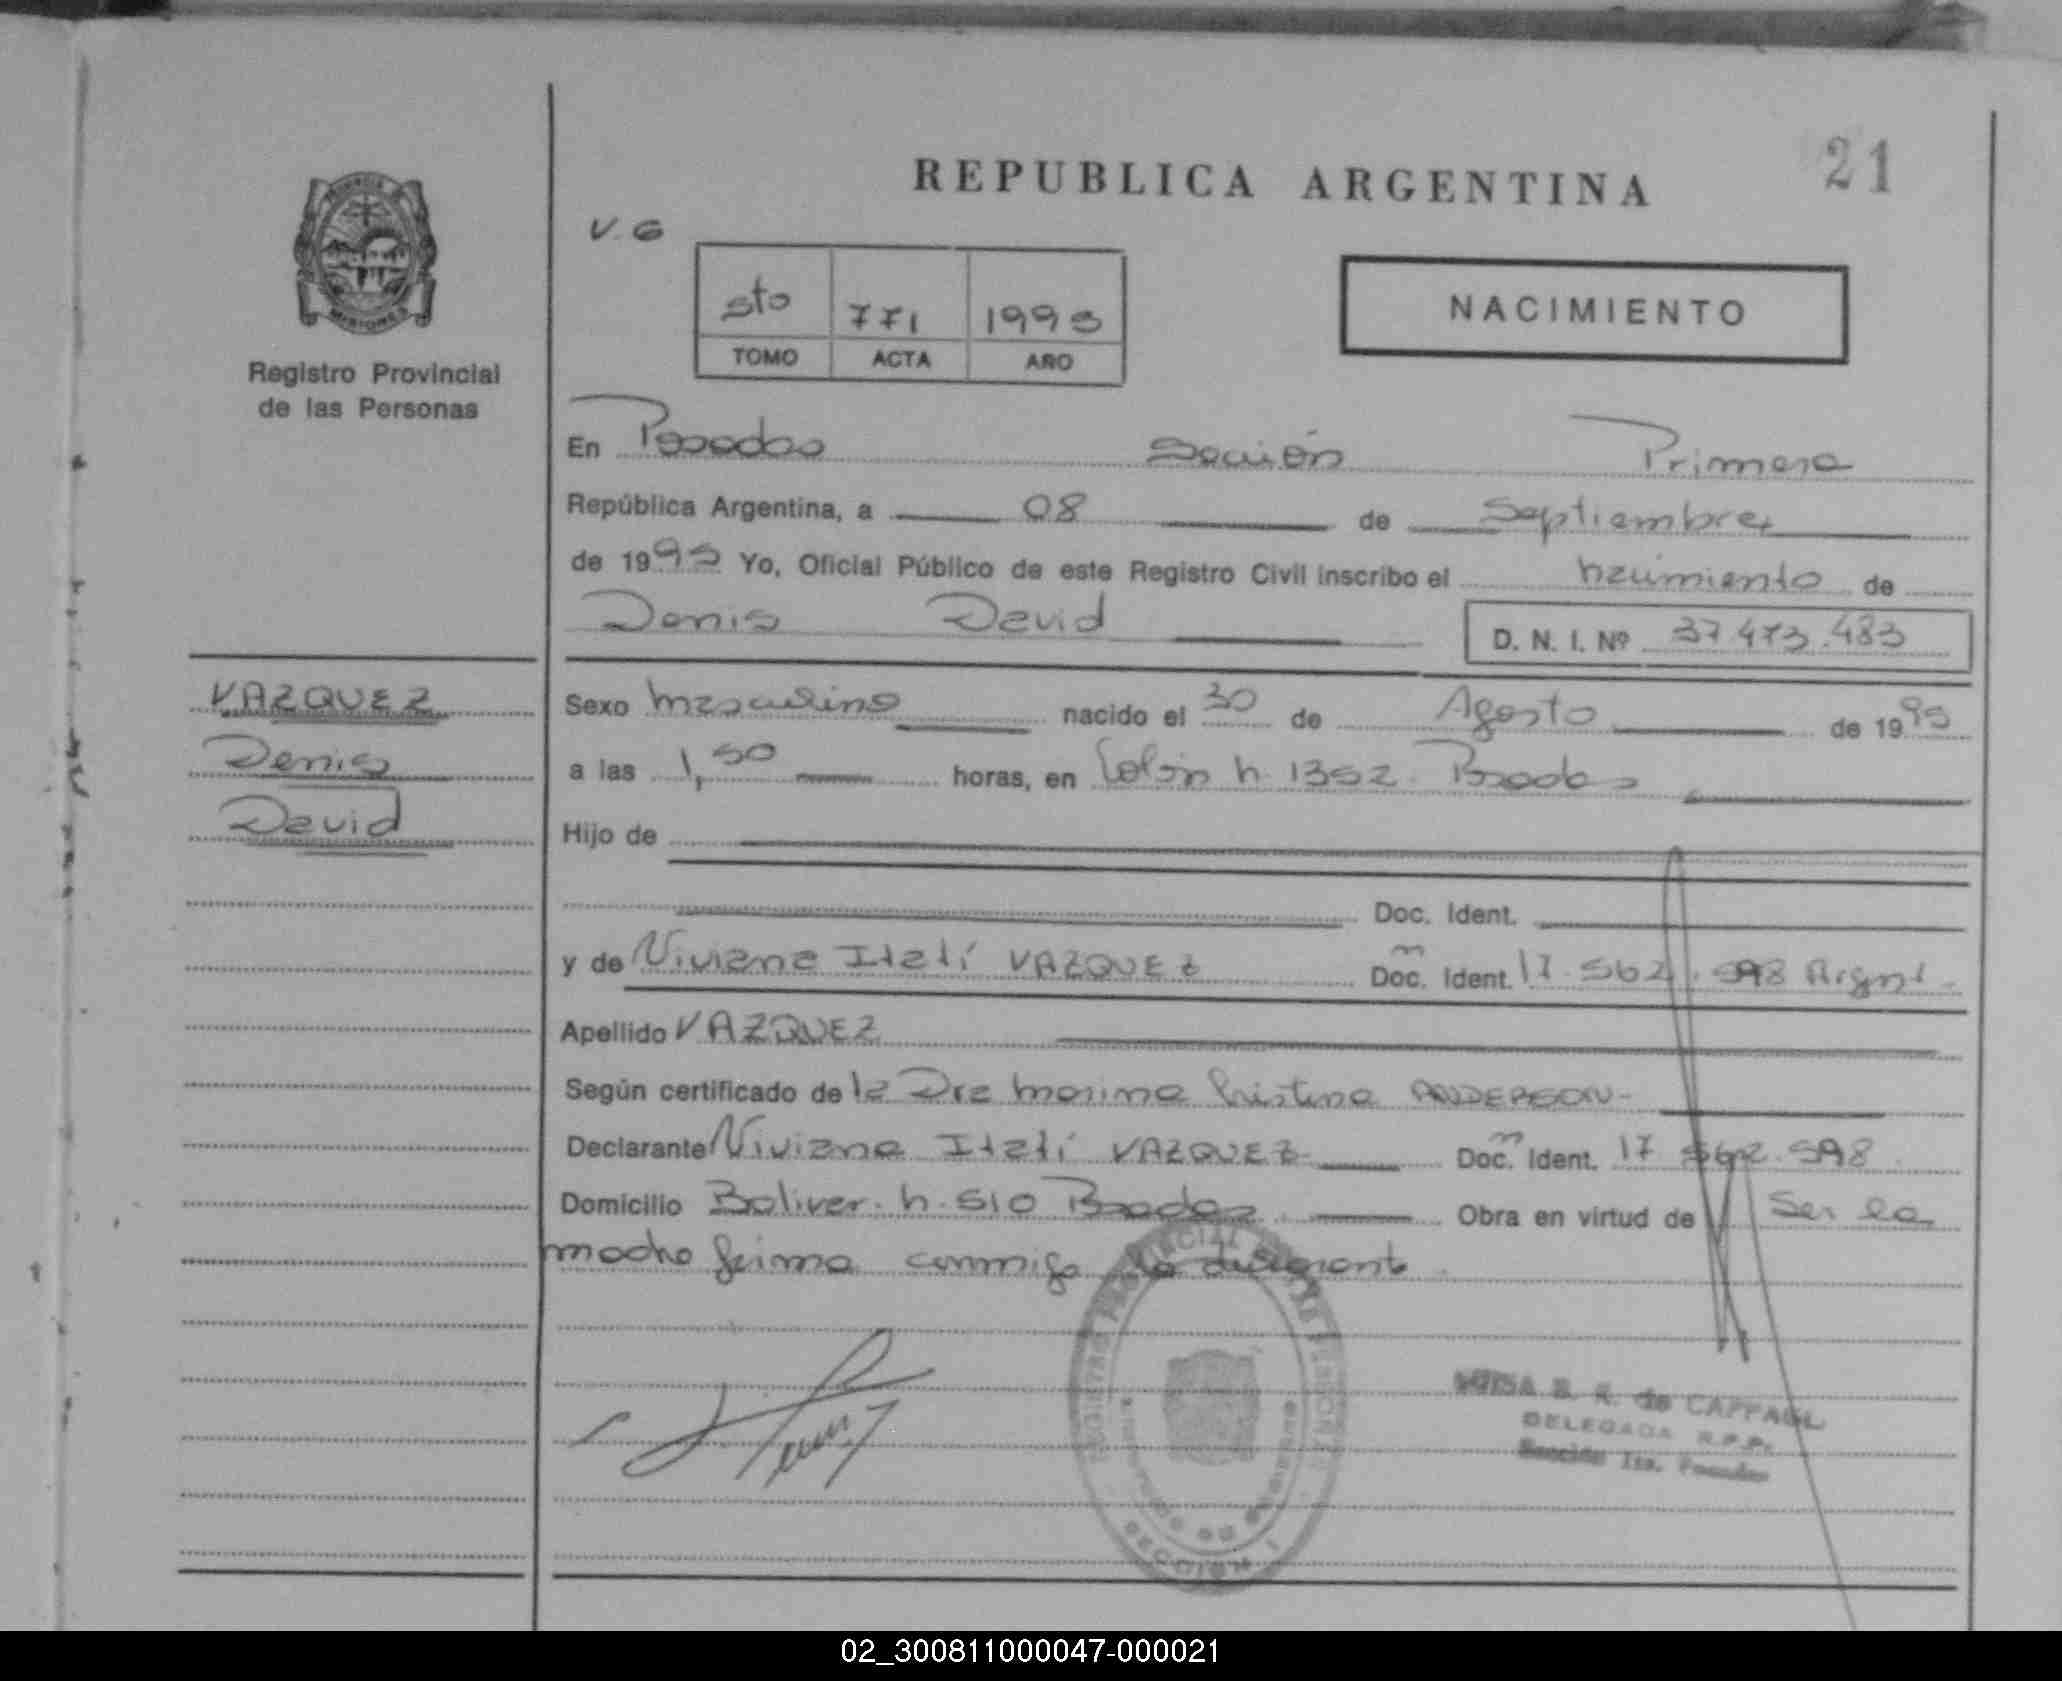 REPUBLICA ARGENTINA
21
V. G
5to 771 1995
TOMO ACTA AÑO
NACIMIENTO
MISIONES
Registro Provincial
de las Personas
En Posadas Sección Primera
República Argentina, a 08 de Septiembre
de 1995 Yo, Oficial Público de este Registro Civil inscribo el nacimiento de
Denis David
D. N. I. Nº 37 473.483
VAZQUEZ
Denis
David
Sexo masculino nacido el 30 de Agosto de 1995
a las 1,50 horas, en Colón n. 1352. Posadas
Hijo de
Doc. Ident.
y de Viviana Itatí VAZQUEZ Doc. Ident. 17.562.598 Argnt.
Apellido VAZQUEZ
Según certificado de la Dra Marina Cristina ANDERSON-
Declarante Viviana Itatí VAZQUEZ Doc. Ident. 17 562.598
Domicilio Bolivar. n. 510 Posadas Obra en virtud de Ser la
madre firma conmigo la
REGISTRO PROVINCIAL DE LAS PERSONAS
SECCION 1
B. R. de
DELEGADA R.P.P.
Sección 1ra. Posadas
02_300811000047-000021